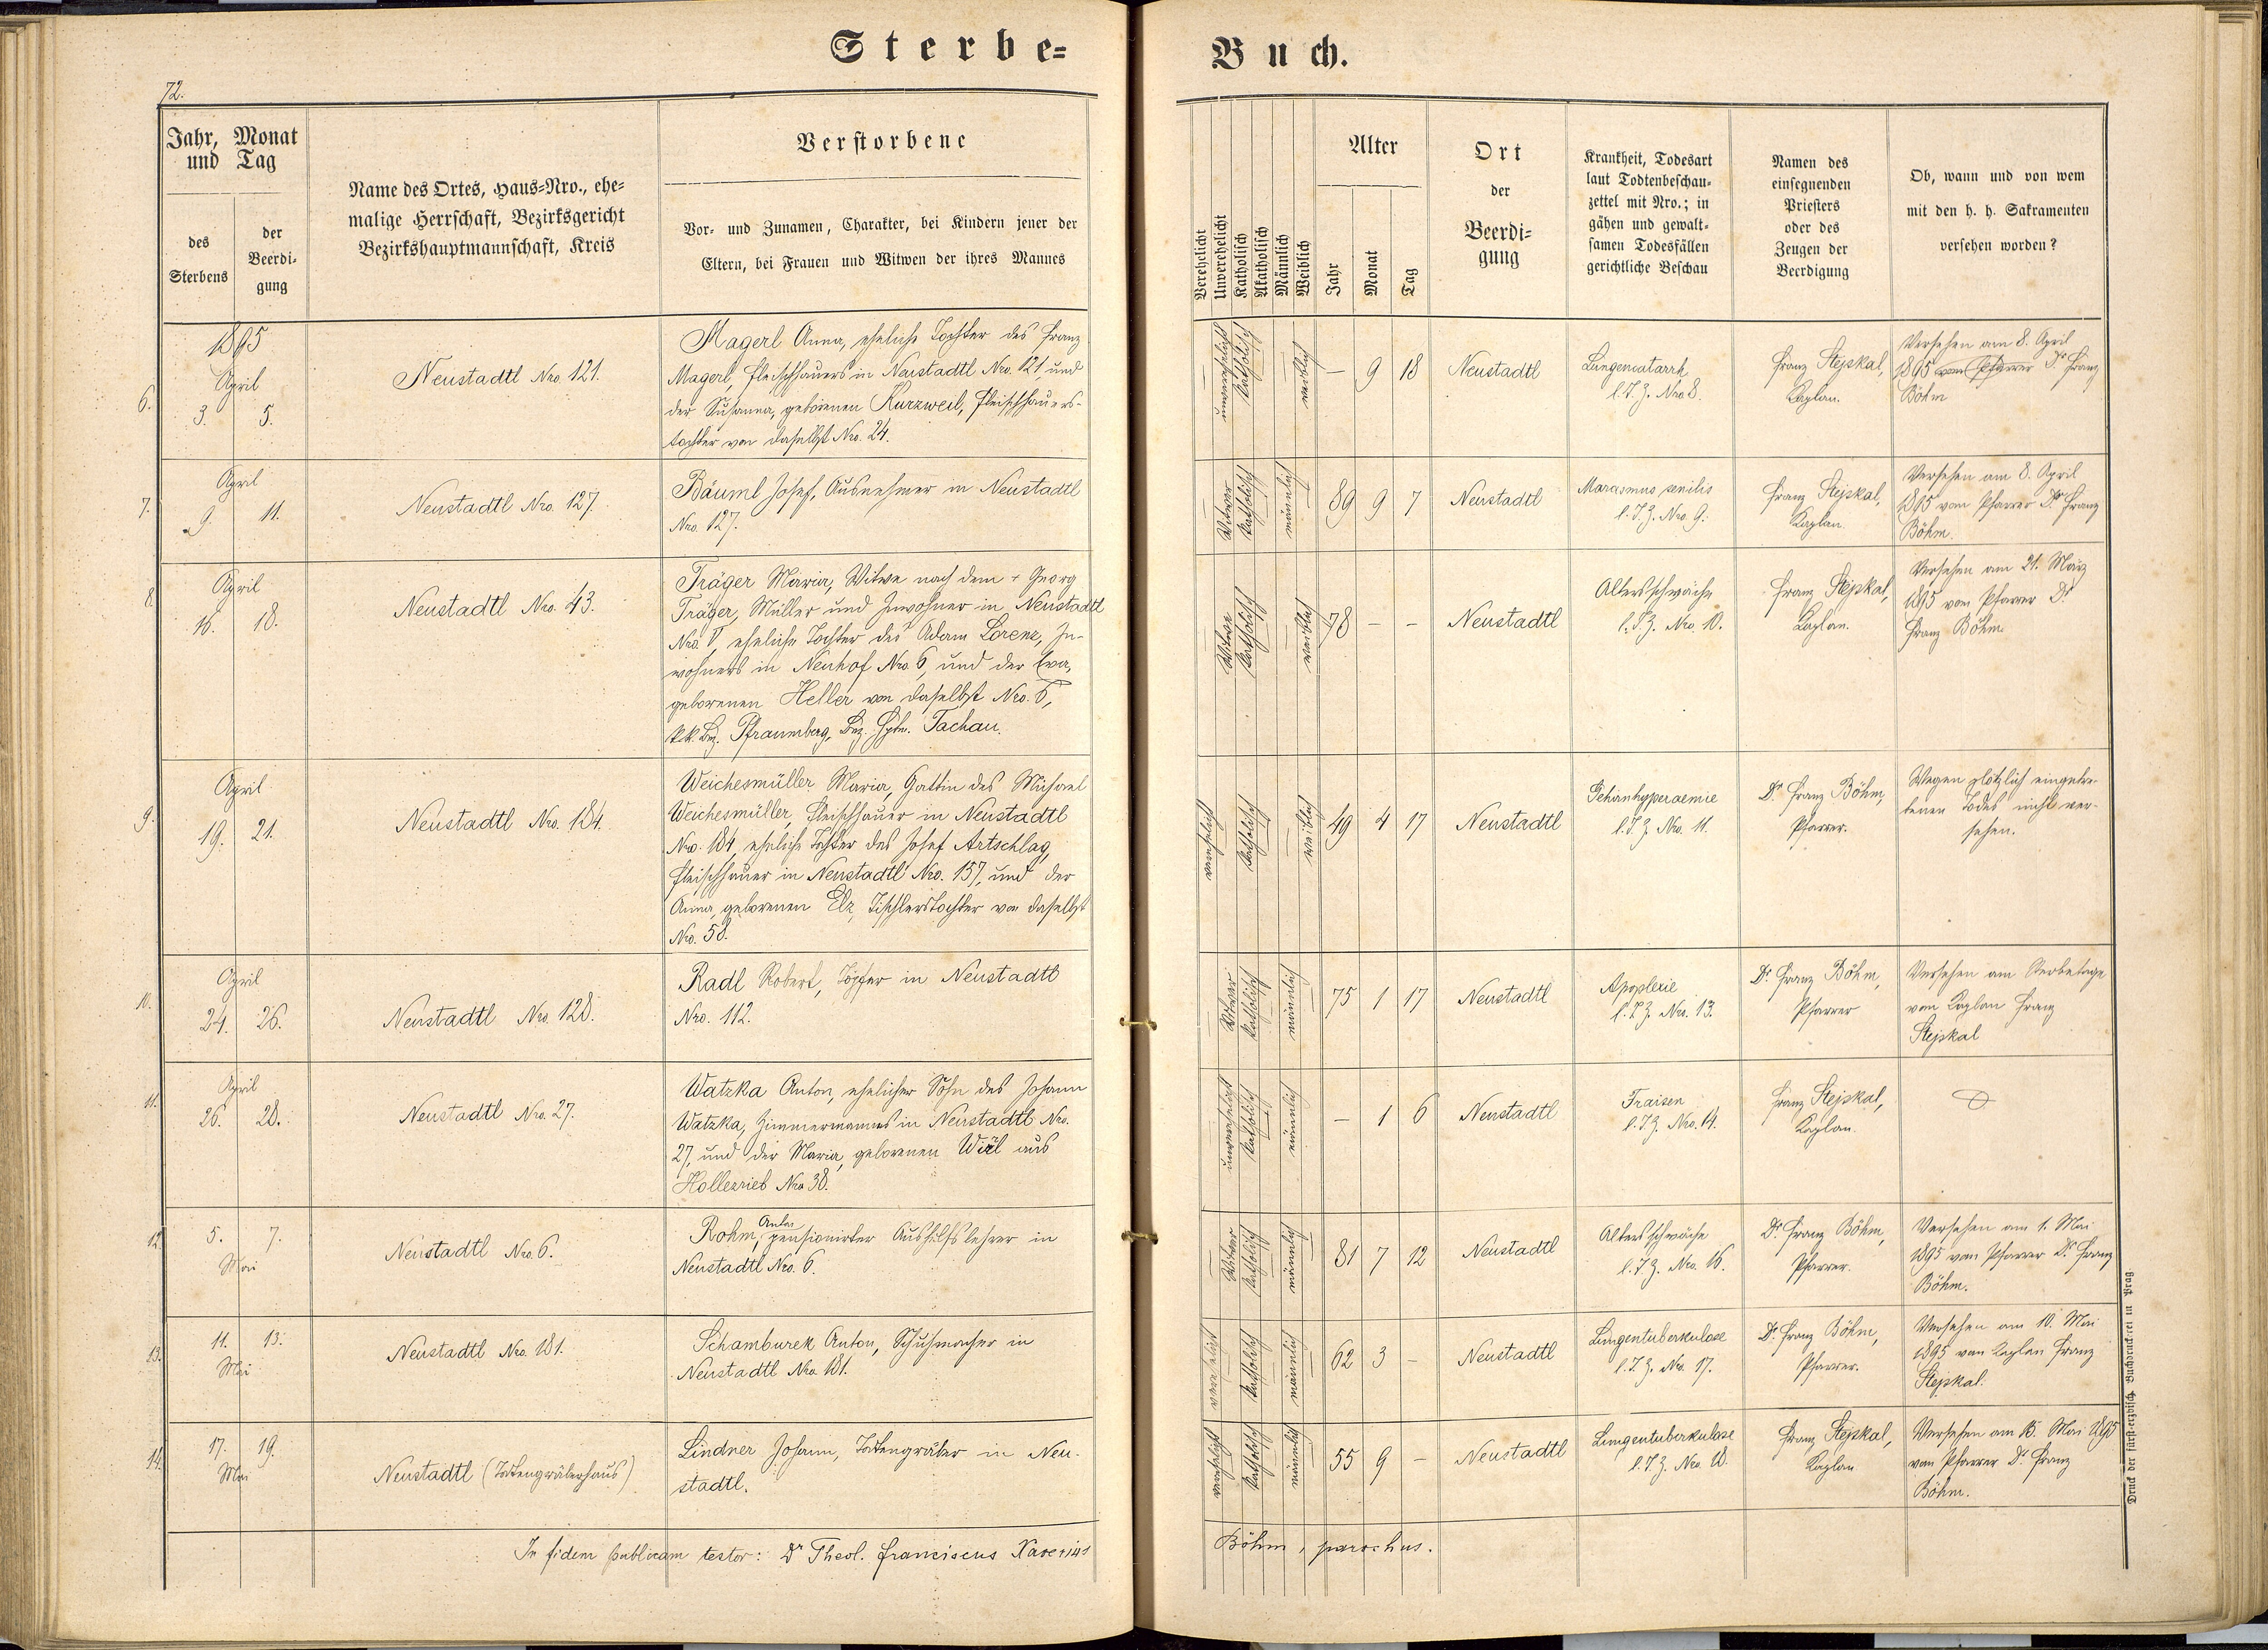 Sterbe=
Buch.
72.
Jahr, Monat
und Tag
des
Sterbens
der
Beerdi-
gung
Name des Ortes, Haus=Nro., ehe=
malige Herrschaft, Bezirksgericht
Bezirkshauptmannschaft, Kreis
Verstorbene
Vor- und Zunamen, Charakter, bei Kindern jener der
Eltern, bei Frauen und Witwen der ihres Mannes
Verehelicht
Unverehelicht
Katholisch
Akatholisch
Männlich
Weiblich
Alter
Jahr
Monat
Tag
Ort
der
Beerdi=
gung
Krankheit, Todesart
laut Todtenbeschau=
zettel mit Nro.; in
gähen und gewalt=
samen Todesfällen
gerichtliche Beschau
Namen des
einsegnenden
Priesters
oder des
Zeugen der
Beerdigung
Ob, wann und von wem
mit den h. h. Sakramenten
versehen worden?
6.
1895
April
3. 5.
Neustadtl Nro. 121.
Magerl Anna, eheliche Tochter des Franz
Magerl, Fleischhauers in Neustadtl Nro. 121 und
der Susanna, geborenen Kurzweil, Fleischhauers-
tochter von daselbst Nro. 24.
unverehelicht
katholisch
weiblich
– 9 18
Neustadtl
Lungencatarrh
l. T. Z. Nro 8.
Franz Stejskal,
Kaplan.
Versehen am 8. April
1895 vom Pfarrer Dr. Franz
Böhm
7.
April
9. 11.
Neustadtl Nro. 127.
Bäuml Josef, Ausnehmer in Neustadtl
Nro. 127.
Witwer
katholisch
männlich
89 9 7
Neustadtl
Marasmus senilis
l. T. Z. Nro. 9.
Franz Stejskal,
Kaplan.
Versehen am 8. April
1895 vom Pfarrer Dr. Franz
Böhm.
8.
April
16. 18.
Neustadtl Nro. 43.
Träger Maria, Witwe nach dem + Georg
Träger, Müller und Inwohner in Neustadtl
Nro. eheliche Tochter des Adam Lorenz, In-
wohners in Neuhof Nro 6, und der Eva,
geborenen Heller von daselbst Nro. 6,
k.k. Bez. Pfraumberg, Bez. Hptm. Tachau.
Witwe
katholisch
weiblich
78 – –
Neustadtl
Altersschwäche
l. T. Z. Nro. 10.
Franz Stejskal,
Kaplan.
Versehen am 21. März
1895 vom Pfarrer Dr.
Franz Böhm.
9.
April
19. 21.
Neustadtl Nro. 184.
Weichesmüller Maria, Gattin des Michael
Weichesmüller, Fleischhauer in Neustadtl
Nro. 184, eheliche Tochter des Josef Artschlag,
Fleischhauer in Neustadtl Nro. 157, und der
Anna, geborenen Elz, Tischlerstochter von daselbst
Nro. 58.
verehelicht
katholisch
weiblich
49 4 17
Neustadtl
Gehirnhyperaemie
l. T. Z. Nro. 11.
Dr. Franz Böhm,
Pfarrer.
Wegen plötzlich eingetre-
tenen Todes nicht ver-
sehen.
10.
April
24. 26.
Neustadtl Nro. 128.
Radl Robert, Töpfer in Neustadtl
Nro. 112.
Witwer
katholisch
männlich
75 1 17
Neustadtl
Apoplexie
l. T. Z. Nro. 13.
Dr. Franz Böhm,
Pfarrer
Versehen am Sterbetage
vom Kaplan Franz
Stejskal
11.
April
26. 28.
Neustadtl Nro. 27.
Watzka Anton, ehelicher Sohn des Johann
Watzka, Zimmermannes in Neustadtl Nro.
27, und der Maria, geborenen aus
Hollezrieb Nro 38.
unverehelicht
katholisch
männlich
– 1 6
Neustadtl
Fraisen
l. T. Z. Nro. 14.
Franz Stejskal,
Kaplan.
12.
5. 7.
Mai
Neustadtl Nro. 6.
Rohm, Anton pensionirter Aushilfslehrer in
Neustadtl Nro. 6.
Witwer
katholisch
männlich
81 7 12
Neustadtl
Altersschwäche
l. T. Z. Nro. 16.
Dr. Franz Böhm,
Pfarrer.
Versehen am 1. Mai
1895 vom Pfarrer Dr. Franz
Böhm.
13.
11. 13.
Mai
Neustadtl Nro. 181.
Schamburek Anton, Schuhmacher in
Neustadtl Nro 181.
verehelicht
katholisch
männlich
62 3 –
Neustadtl
Lungentuberkulose
l. T. Z. Nro. 17.
Dr. Franz Böhm,
Pfarrer.
Versehen am 10. Mai
1895 vom Kaplan Franz
Stejskal.
14.
17. 19.
Mai
Neustadtl (Todtengräberhaus)
Lindner Johann, Todtengräber in Neu-
stadtl.
verehelicht
katholisch
männlich
55 9 –
Neustadtl
Lungentuberkulose
l. T. Z. Nro. 18.
Franz Stejskal,
Kaplan
Versehen am 15. Mai 1895
vom Pfarrer Dr. Franz
Böhm.
In fidem publicam testor: Dr Theol. Franciscus Xaverius
Böhm, parochus.
Druck der fürst-erzbisch. Buchdruckerei in Prag